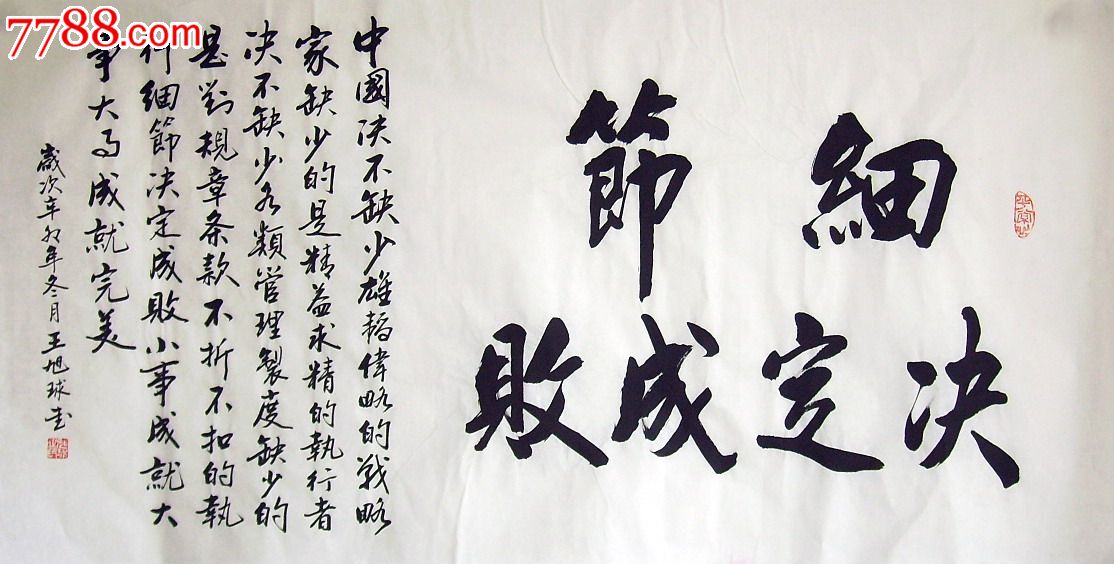 7788.com
細節
决定成敗
中國决不缺少雄韜偉略的戰略
家缺少的是精益求精的執行者
决不缺少各類管理製度缺少的
是對規章条款不折不扣的執
行細節决定成敗小事成就大
事大事成就完美
歲次辛卯年冬月王旭球书